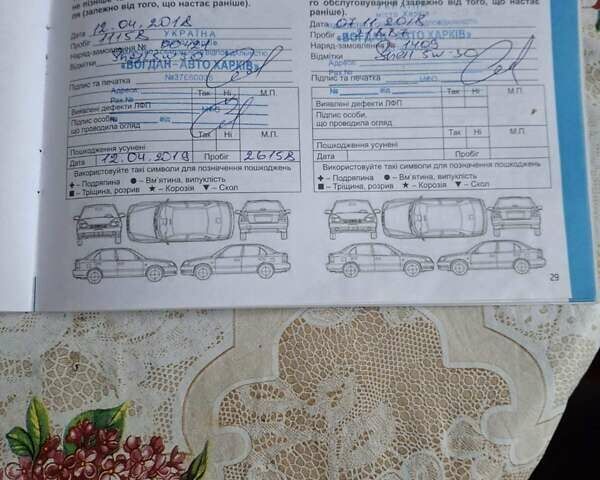 ля (залежно від того, що настає раніше).
Дата 12.04.2018
Пробіг 11158
УКРАЇНА
Наряд-замовлення № 00421
Відмітки
«БОГДАН-АВТО ХАРКІВ»
Підпис та печатка
Адреса: Так Ні М.П.
Рах.№
Виявлені дефекти ЛФП
Підпис особи,
що проводила огляд
№ від
Так Ні М.П.
Пошкодження усунені
Дата 12.04.2019 Пробіг 26158
Використовуйте такі символи для позначення пошкоджень
– Подряпина – Вм'ятина, випуклість
– Тріщина, розрив – Корозія – Скол
го обслуговування (залежно від того, що настає
раніше).
Дата 07.11.2018
Пробіг
Наряд-замовлення № 1409
Відмітки Shell 5W-30
«БОГДАН-АВТО ХАРКІВ»
Підпис та печатка
Так Ні М.П.
Виявлені дефекти ЛФП
Підпис особи,
що проводила огляд
Так Ні М.П.
Пошкодження усунені
Дата Пробіг
Використовуйте такі символи для позначення пошкоджень
– Подряпина – Вм'ятина, випуклість
– Тріщина, розрив – Корозія – Скол
29